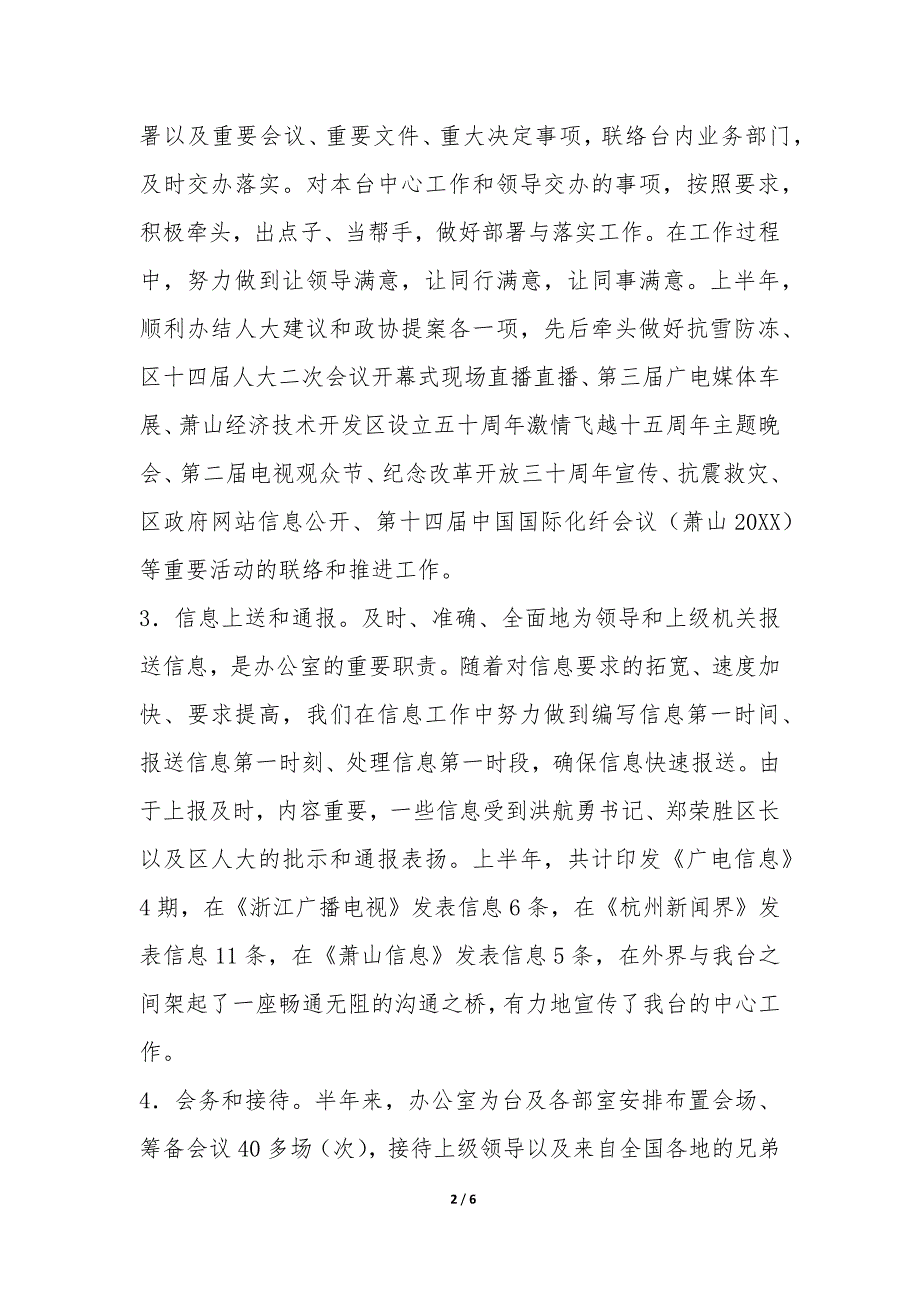 署以及重要会议、重要文件、重大决定事项，联络台内业务部门，
及时交办落实。对本台中心工作和领导交办的事项，按照要求，
积极牵头，出点子、当帮手，做好部署与落实工作。在工作过程
中，努力做到让领导满意，让同行满意，让同事满意。上半年，
顺利办结人大建议和政协提案各一项，先后牵头做好抗雪防冻、
区十四届人大二次会议开幕式现场直播直播、第三届广电媒体车
展、萧山经济技术开发区设立五十周年激情飞越十五周年主题晚
会、第二届电视观众节、纪念改革开放三十周年宣传、抗震救灾、
区政府网站信息公开、第十四届中国国际化纤会议（萧山 20XX）
等重要活动的联络和推进工作。
3．信息上送和通报。及时、准确、全面地为领导和上级机关报
送信息，是办公室的重要职责。随着对信息要求的拓宽、速度加
快、要求提高，我们在信息工作中努力做到编写信息第一时间、
报送信息第一时刻、处理信息第一时段，确保信息快速报送。由
于上报及时，内容重要，一些信息受到洪航勇书记、郑荣胜区长
以及区人大的批示和通报表扬。上半年，共计印发《广电信息》
4 期，在《浙江广播电视》发表信息 6 条，在《杭州新闻界》发
表信息 11 条，在《萧山信息》发表信息 5 条，在外界与我台之
间架起了一座畅通无阻的沟通之桥，有力地宣传了我台的中心工
作。
4．会务和接待。半年来，办公室为台及各部室安排布置会场、
筹备会议 40 多场（次），接待上级领导以及来自全国各地的兄弟
2 / 6